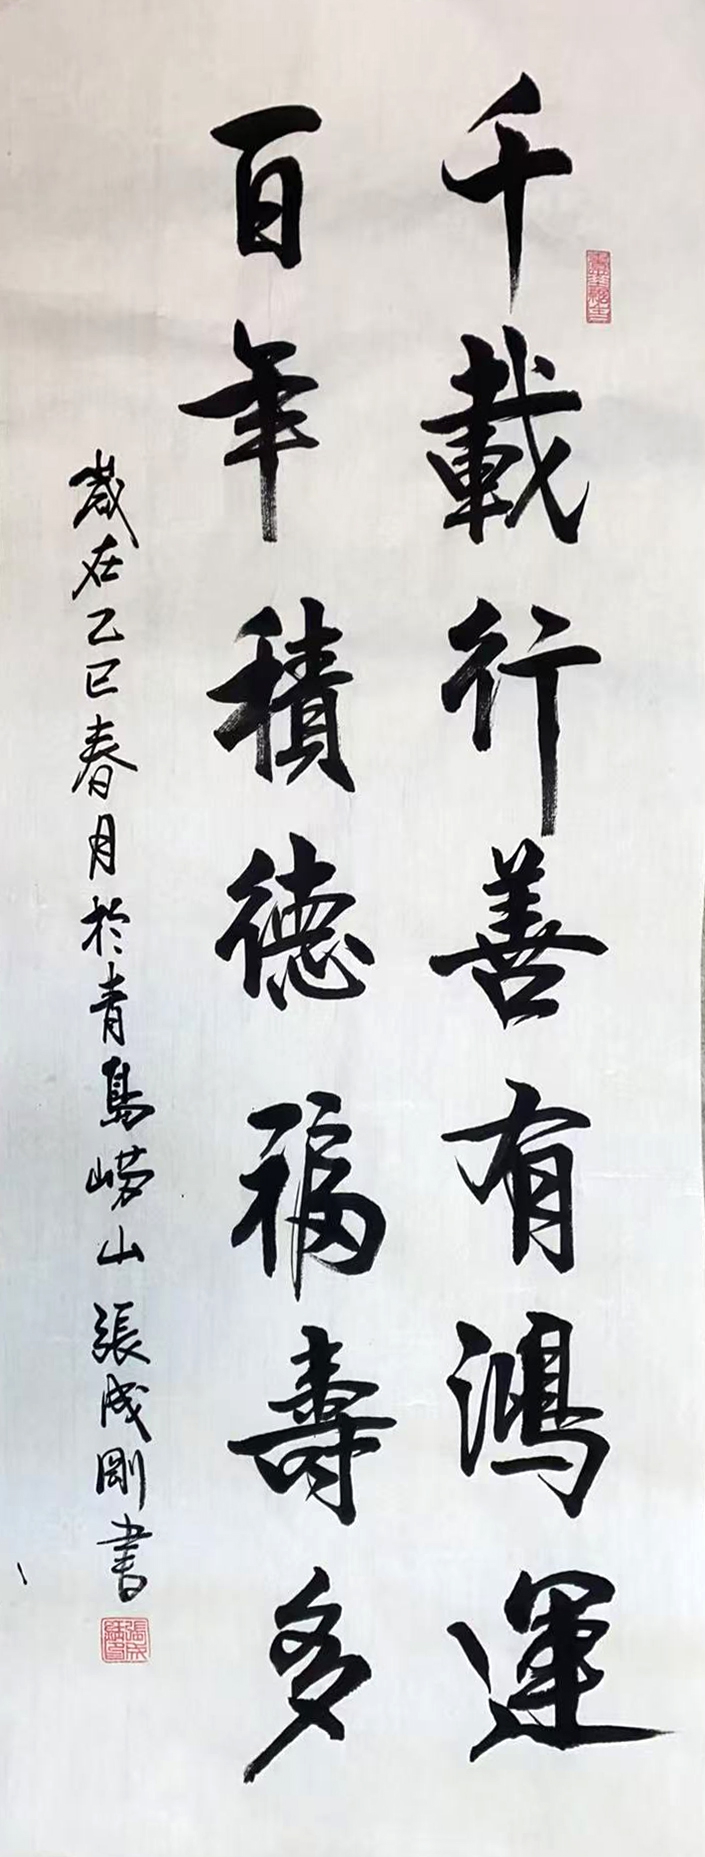 千載行善有鴻運
百年積德福壽多
歲在乙巳春月於青島嶗山張成剛書